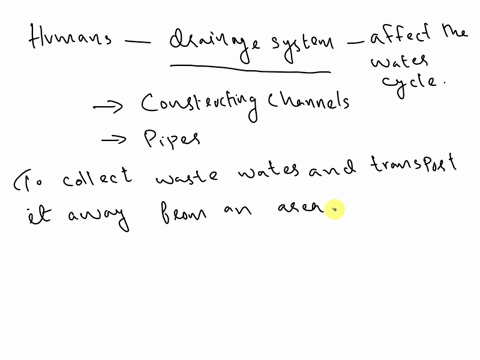 Humans — drainage system — affect the
water
cycle.
→ Constructing channels
→ Pipes
(To collect waste water and transport
it away from an area.